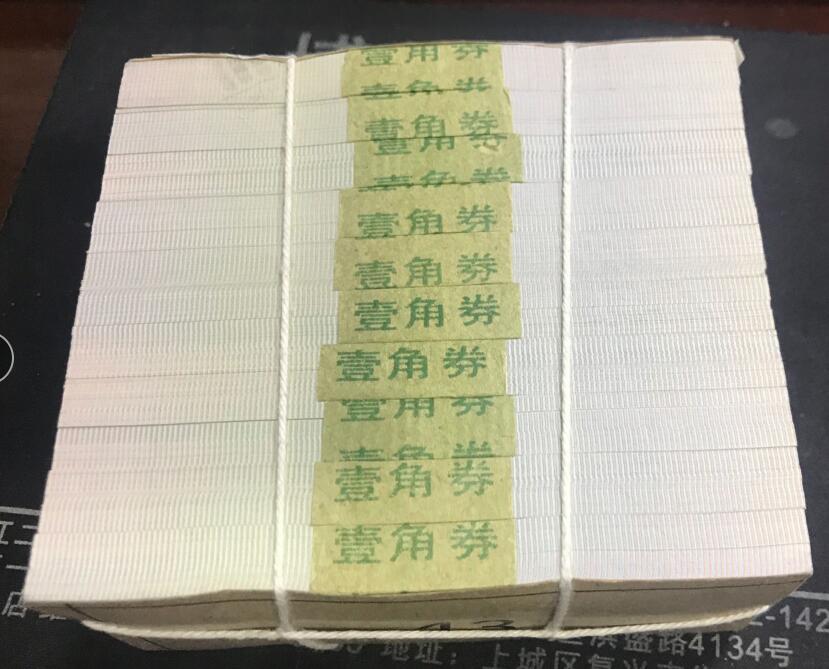 壹角券
壹角券
壹角券
壹角券
壹角券
壹角券
壹角券
壹角券
壹角券
壹角券
壹角券
壹角券
壹角券
43
-142
地址：上城区复兴
盛路4134号
店